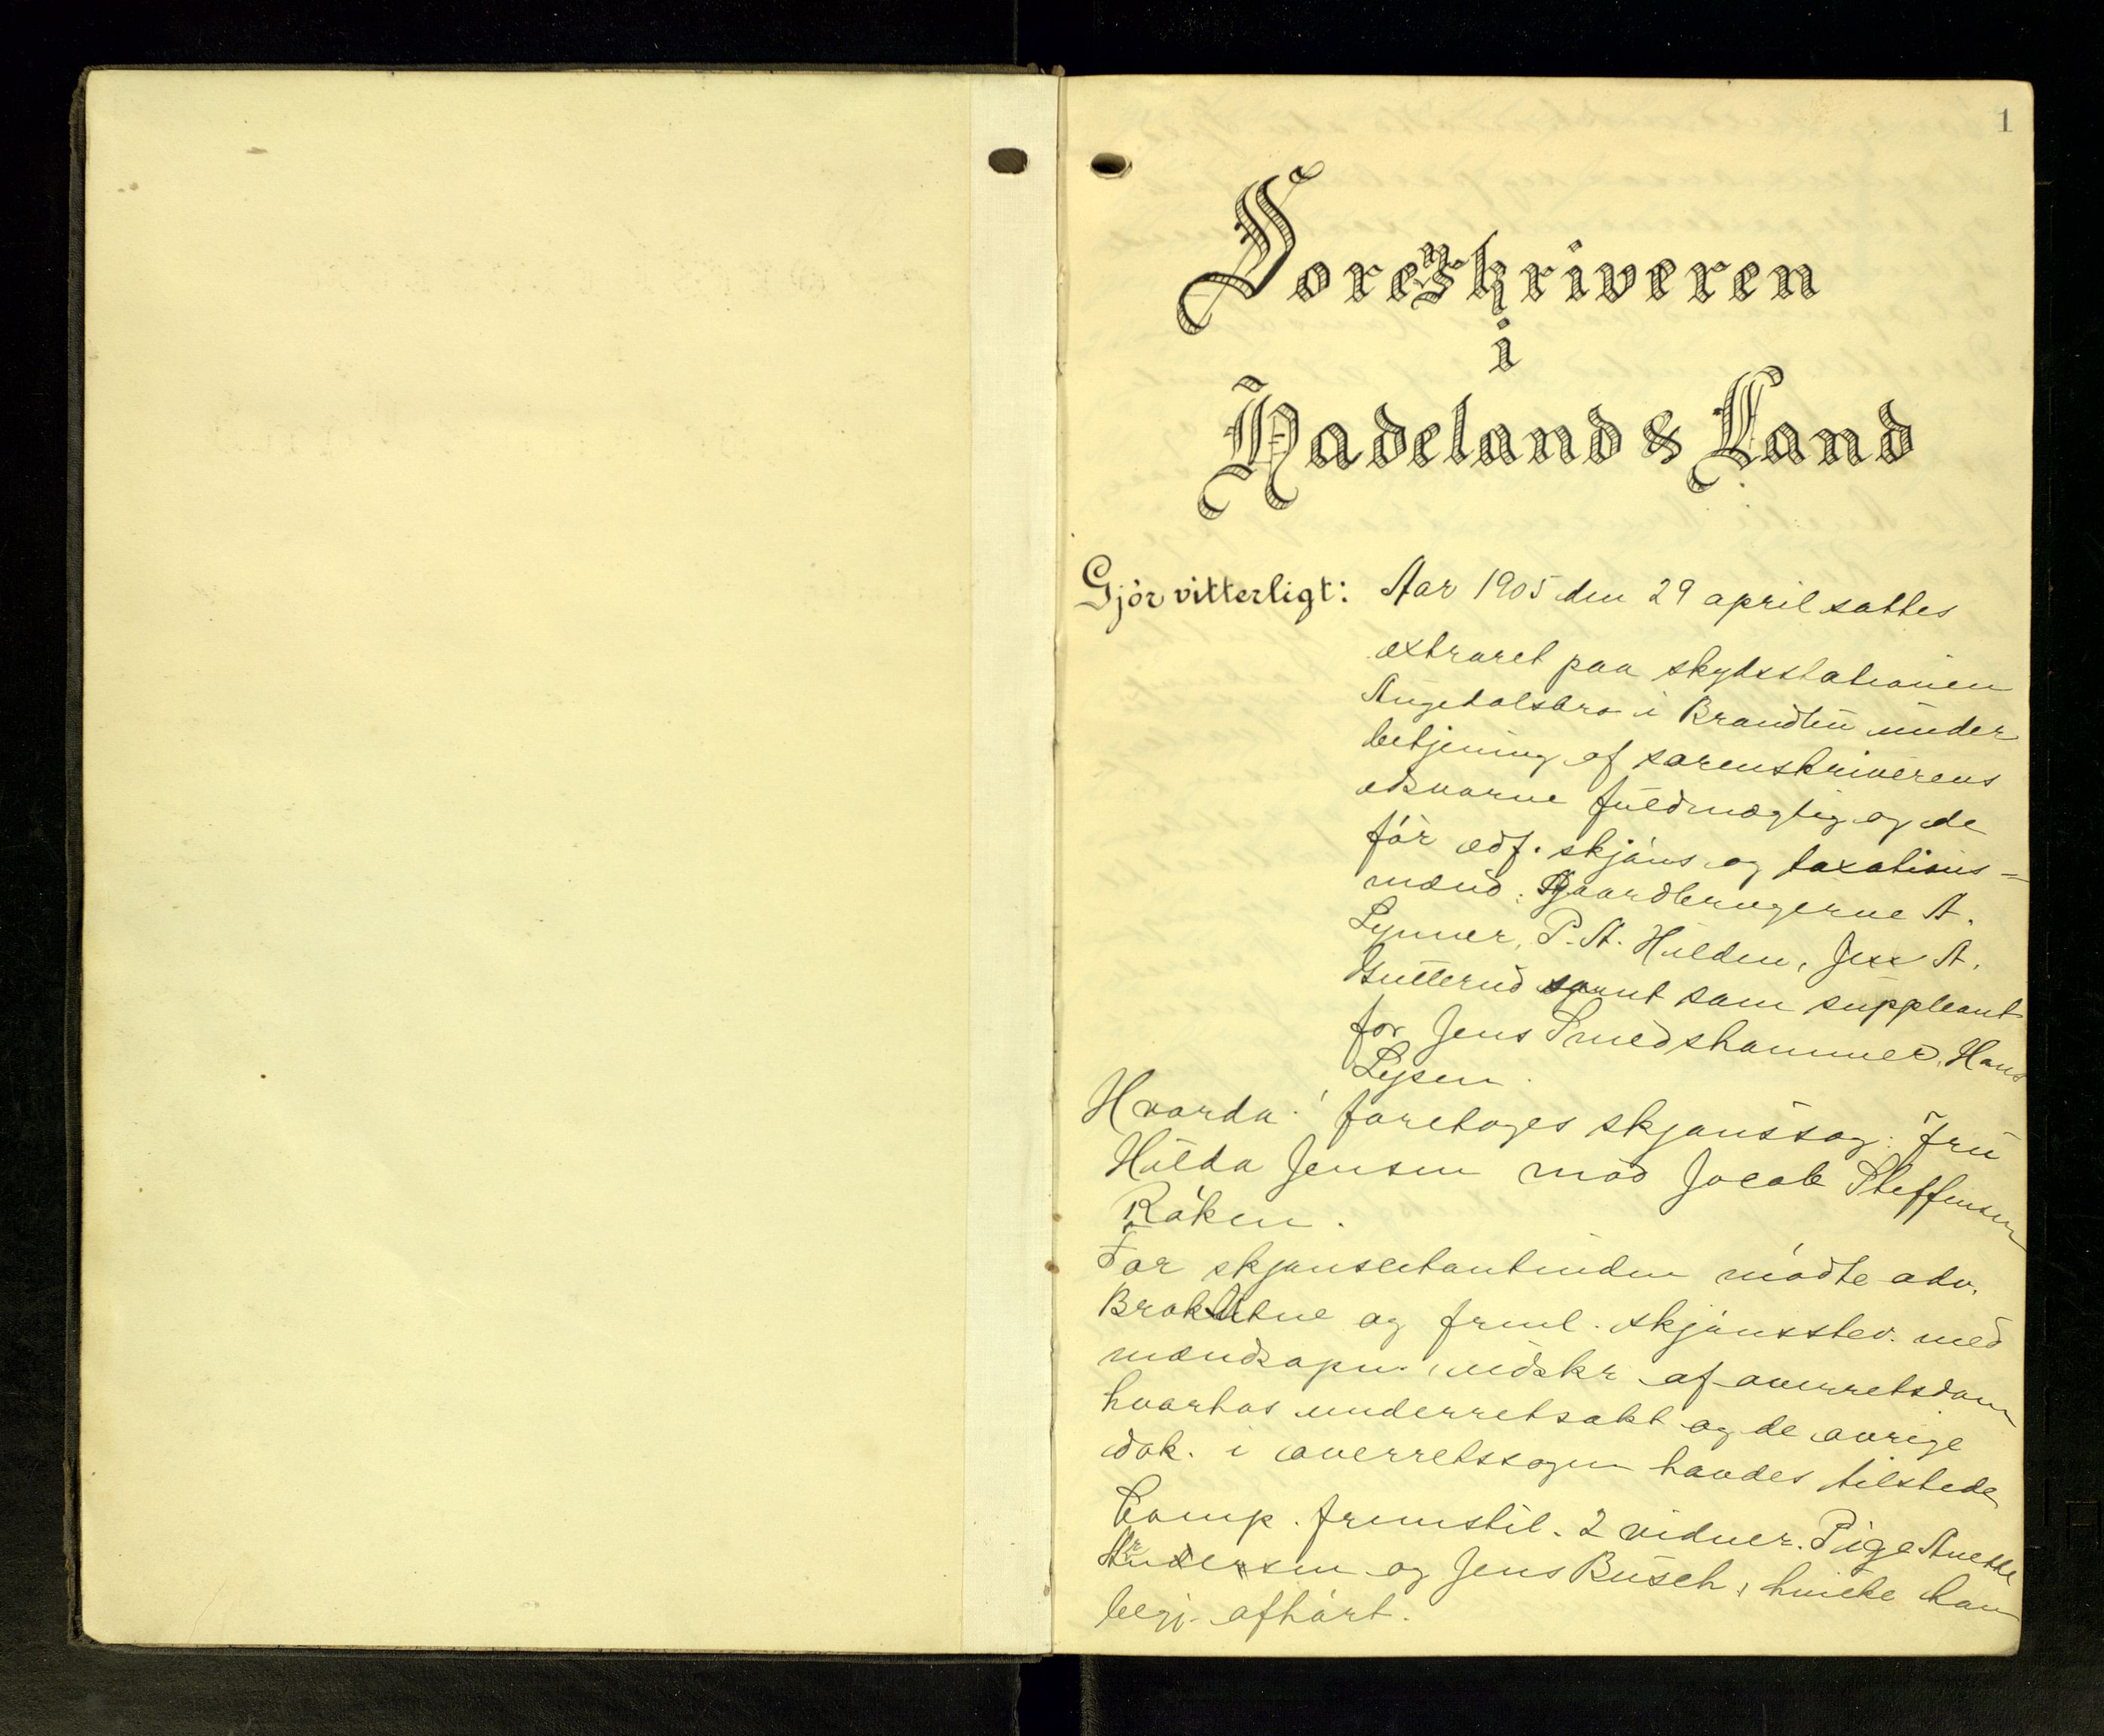 1
Sorenskriveren
i
Hadeland & Land
Gjör vitterligt: Aar 1905 den 29 april sattes
extraret paa skydsstationen
Augedalsbro i Brandbu under
betjening af sorenskriverens
edsvorne fuldmægtig og de
för edf. skjöns og taxations-
mænd: Gaardbrugerne A.
Lynner, P. A. Hilden, Jess A.
Gutterud samt som suppleant
for Jens Smedshammer, Hans
Lysen.
Hvorda: foretoges skjönssag: Fru
Hilda Jensen mod Jacob Steffensen
Röken.
For skjönscitantinden mödte adv.
Brok Utne og freml. skjönsstev. med
mændsopn., udskr af overretsdom
hvorhos underretsakt og de övrige
dok. i overretssagen havdes tilstede
Comp. fremstil. 2 vidner. Pige Anette
Andersen og Jens Busch, hvilke han
begj. afhört.